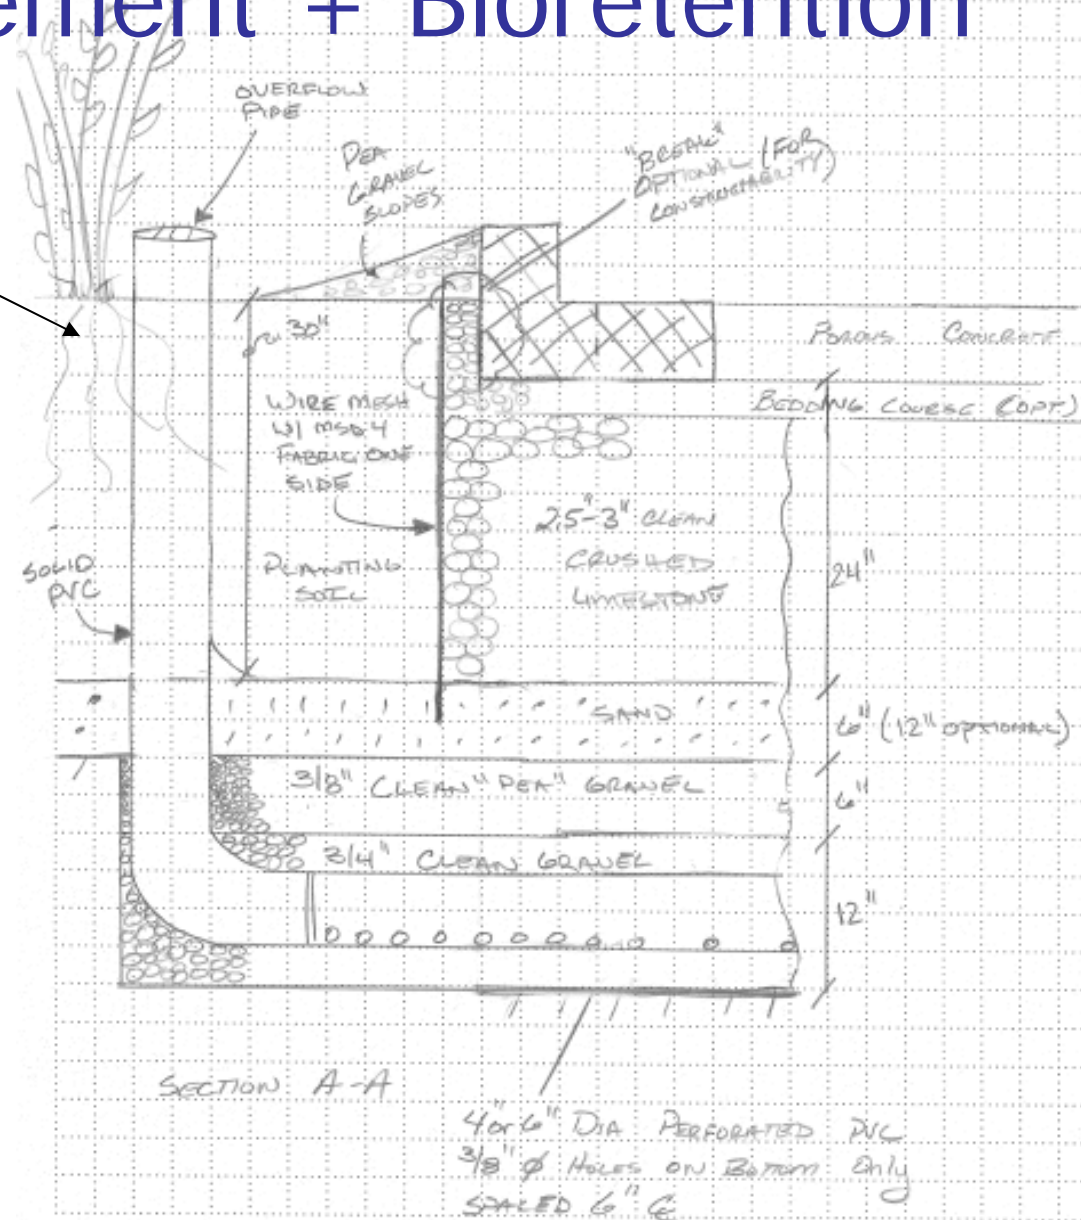 ement + Bioretention
OVERFLOW
PIPE
PEA
GRAVEL
SLOPES
"BREAK"
OPTIONAL (FOR
CONSTRUCTABILITY)
30"
POROUS CONCRETE
BEDDING COURSE (OPT)
WIRE MESH
W/
FABRIC ONE
SIDE
2.5"-3" CLEAN
CRUSHED
LIMESTONE
24"
SOLID
PVC
PLANTING
SOIL
SAND
6" (12" OPTIONAL)
3/8" CLEAN "PEA" GRAVEL
6"
3/4" CLEAN GRAVEL
12"
SECTION A-A
4" or 6" DIA PERFORATED PVC
3/8" Ø HOLES ON BOTTOM Only
SPACED 6"